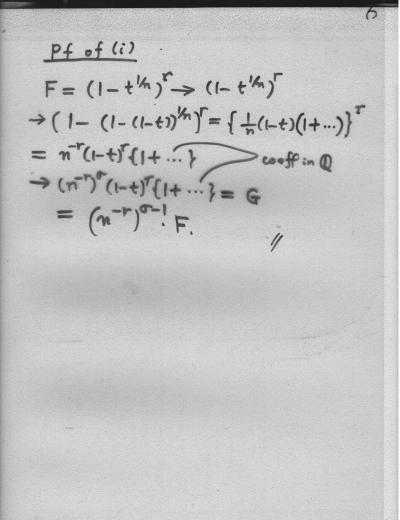 6
Pf of (i)
F = (1 - t^{1/n})^r → (1 - t^{1/n})^r
→ (1 - (1 - (1-t))^{1/n})^r = { 1/n (1-t)(1+ ...)}^r
= n^{-r} (1-t)^r {1 + ... } coeff in ℚ
→ (n^{-r})^σ (1-t)^r {1 + ... } = G
= (n^{-r})^{σ-1} · F. //